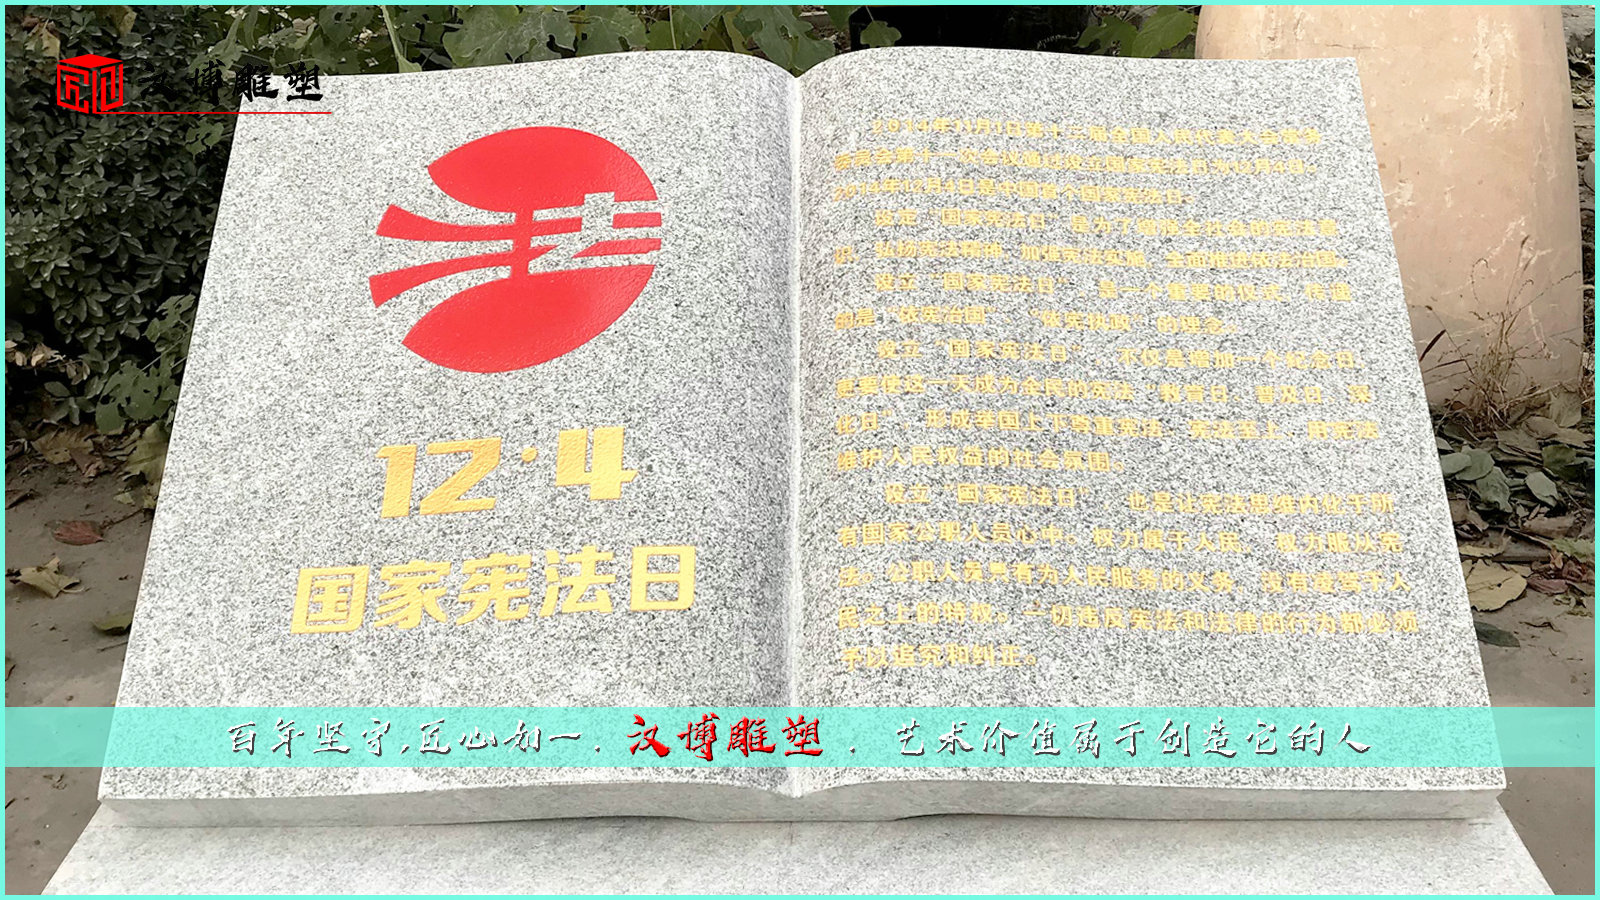 汉博雕塑
法
12·4
国家宪法日
2014年11月1日第十二届全国人民代表大会常务
委员会第十一次会议通过设立国家宪法日为12月4日。
2014年12月4日是中国首个国家宪法日。
设定“国家宪法日”是为了增强全社会的宪法意
识、弘扬宪法精神、加强宪法实施、全面推进依法治国。
设立“国家宪法日”，是一个重要的仪式，传递
的是“依宪治国”、“依宪执政”的理念。
设立“国家宪法日”，不仅是增加一个纪念日，
更要使这一天成为全民的宪法“教育日、普及日、深
化日”，形成举国上下尊重宪法、宪法至上、用宪法
维护人民权益的社会氛围。
设立“国家宪法日”，也是让宪法思维内化于所
有国家公职人员心中。权力属于人民，权力服从宪
法。公职人员只有为人民服务的义务，没有凌驾于人
民之上的特权。一切违反宪法和法律的行为都必须
予以追究和纠正。
百年坚守,匠心如一．汉博雕塑．艺术价值属于创造它的人